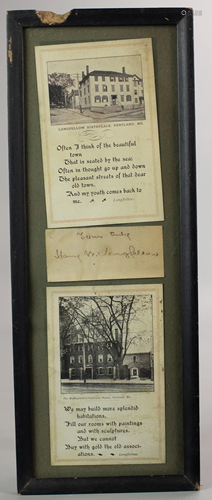 LONGFELLOW BIRTHPLACE, PORTLAND, ME.
Often I think of the beautiful
town
That is seated by the sea:
Often in thought go up and down
The pleasant streets of that dear
old town,
And my youth comes back to
me.
Longfellow
Yours truly
Henry W. Longfellow
We may build more splendid
habitations,
Fill our rooms with paintings
and with sculptures,
But we cannot
Buy with gold the old associ-
ations.
Longfellow